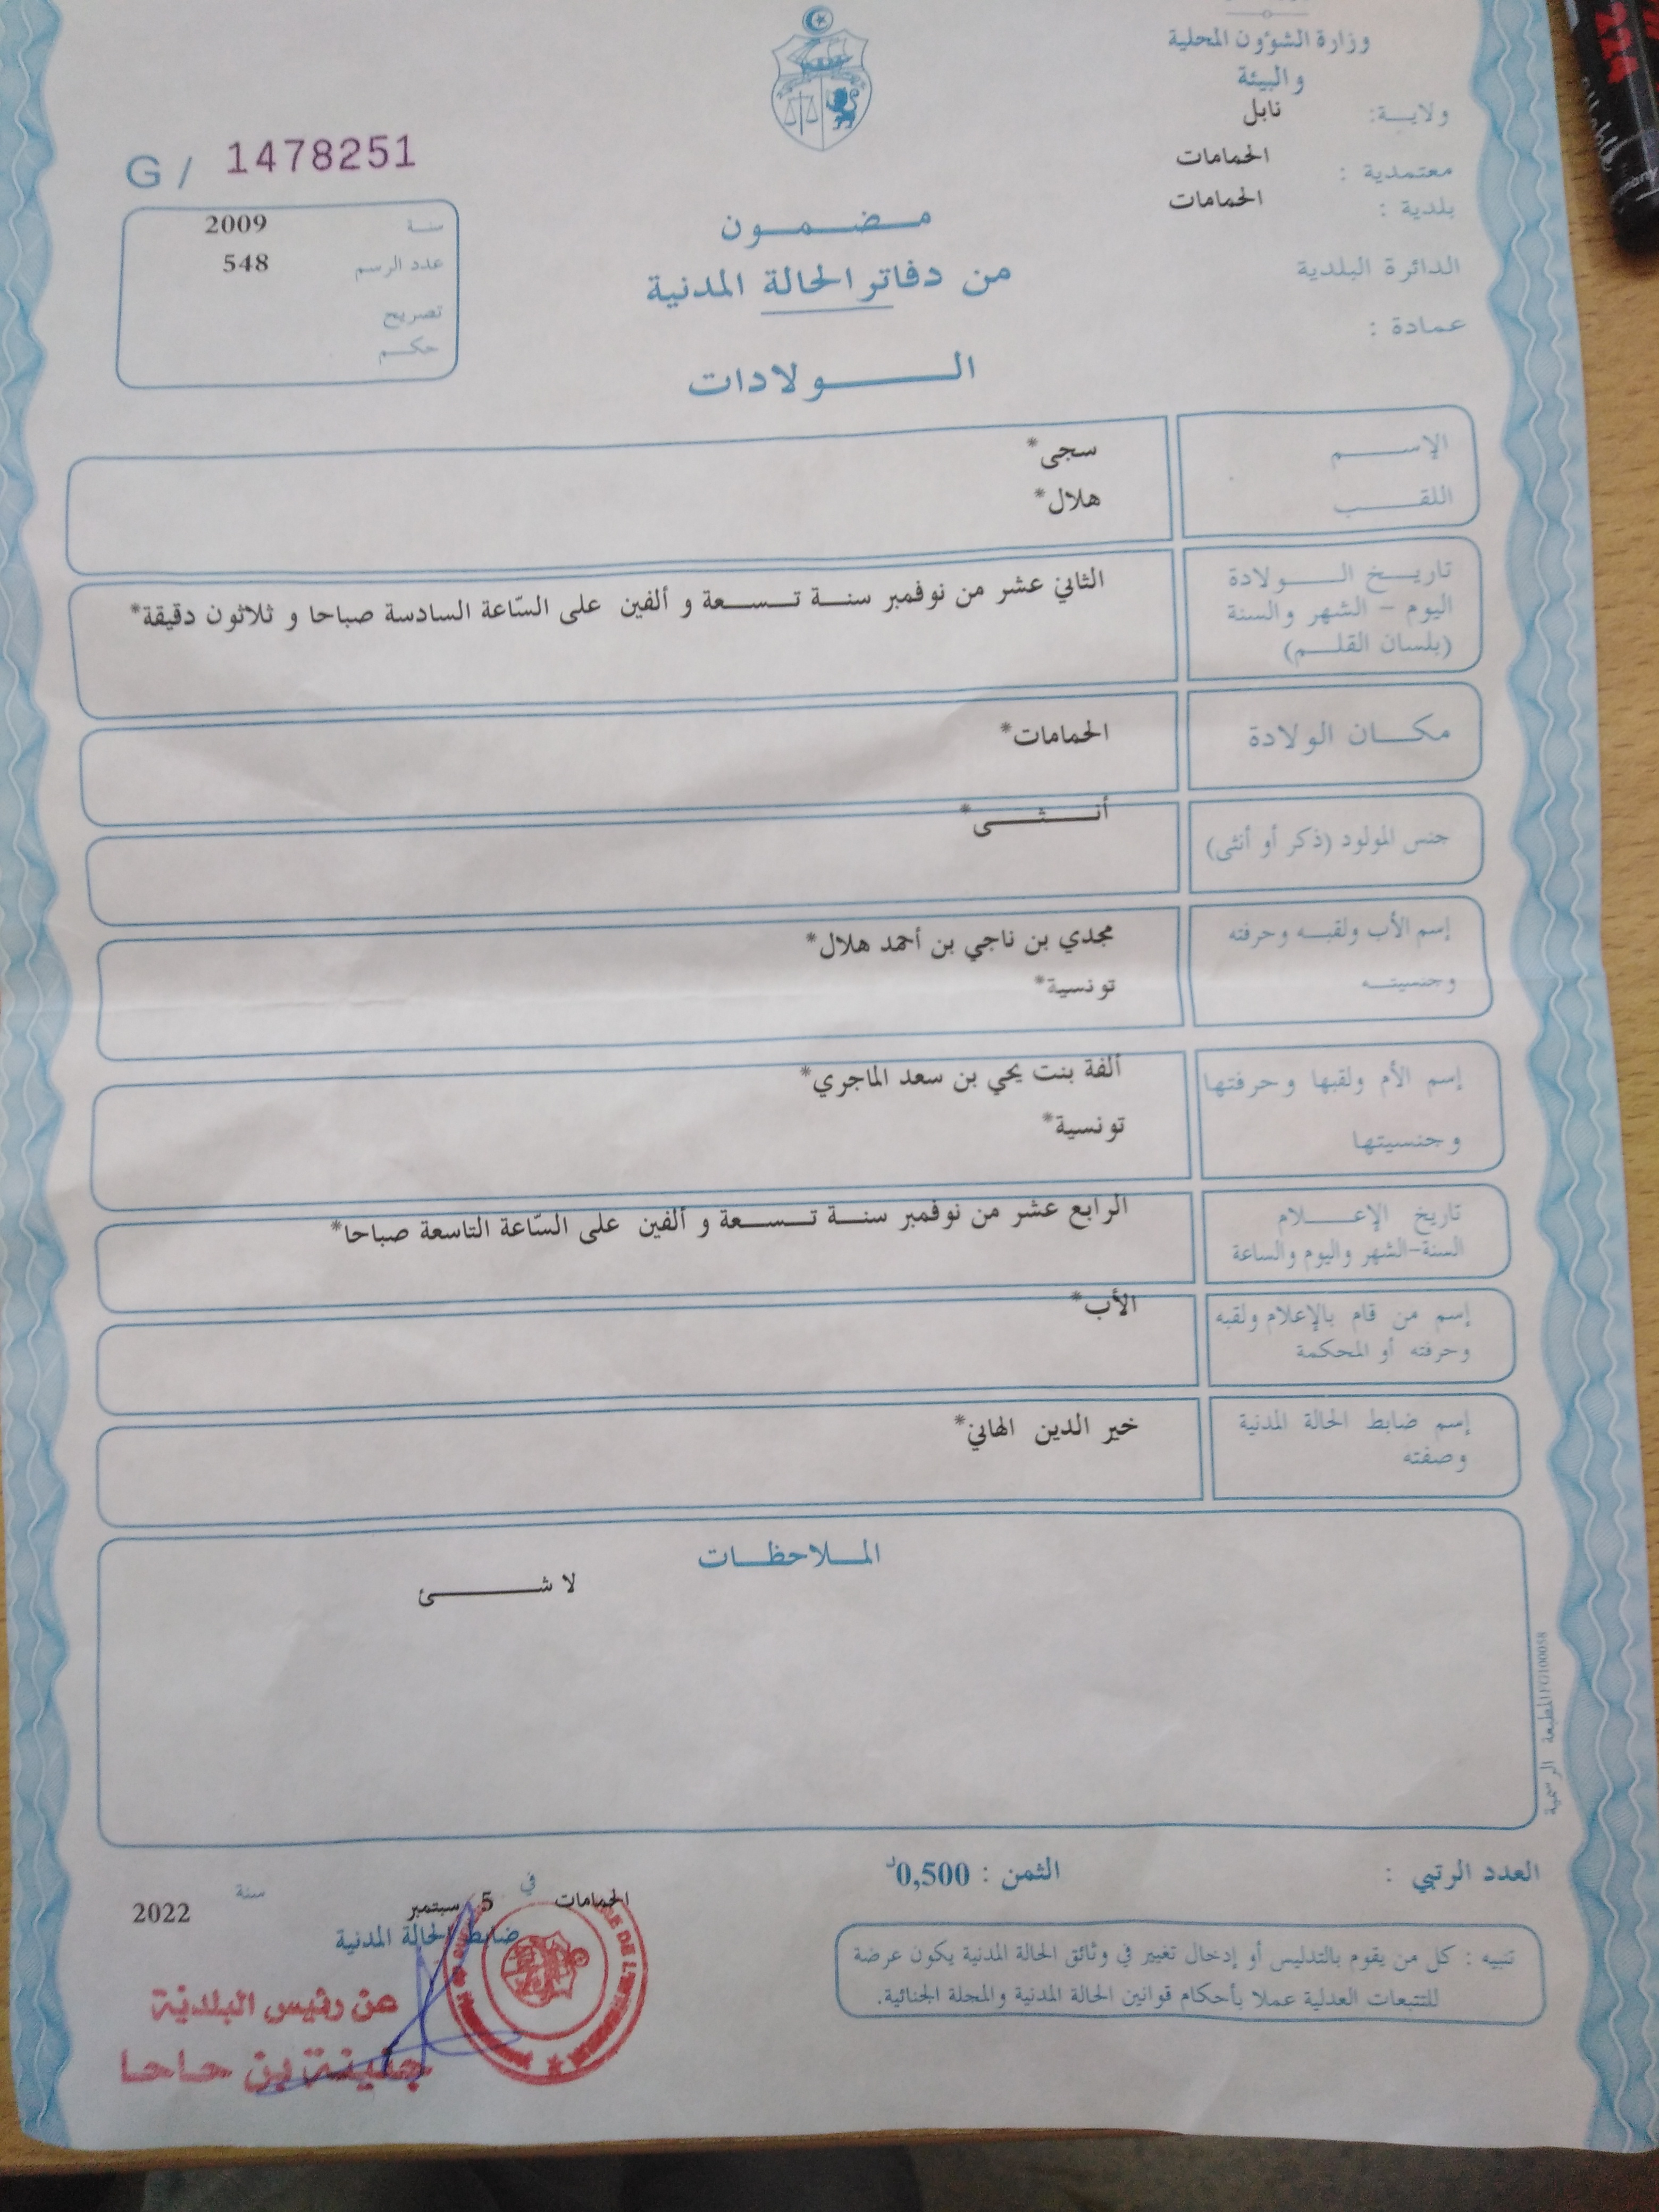 وزارة الشؤون المحلية
والبيئة
ولايـــة: نابل
معتمدية : الحمامات
بلدية : الحمامات
الدائرة البلدية
عمادة :
G / 1478251
سنة 2009
عدد الرسم 548
تصريح
حكم
مضمون
من دفاتر الحالة المدنية
الولادات
الإسم سجى*
اللقب هلال*
تاريخ الولادة الثاني عشر من نوفمبر سنة تسعة و ألفين على السّاعة السادسة صباحا و ثلاثون دقيقة*
اليوم - الشهر والسنة
(بلسان القلم)
مكان الولادة الحمامات*
جنس المولود (ذكر أو أنثى) أنثى*
إسم الأب ولقبه وحرفته مجدي بن ناجي بن أحمد هلال*
وجنسيته تونسية*
إسم الأم ولقبها وحرفتها ألفة بنت يحي بن سعد الماجري*
وجنسيتها تونسية*
تاريخ الإعلام الرابع عشر من نوفمبر سنة تسعة و ألفين على السّاعة التاسعة صباحا*
السنة-الشهر واليوم والساعة
إسم من قام بالإعلام ولقبه الأب*
وحرفته أو المحكمة
إسم ضابط الحالة المدنية خير الدين الهاني*
وصفته
الملاحظات
لا شئ
المطبعة الرسمية
العدد الرتبي :
الثمن : 0,500د
الحمامات في 5 سبتمبر سنة 2022
ضابط الحالة المدنية
عن رئيس البلدية
تنبيه : كل من يقوم بالتدليس أو إدخال تغيير في وثائق الحالة المدنية يكون عرضة
للتتبعات العدلية عملا بأحكام قوانين الحالة المدنية والمجلة الجنائية.